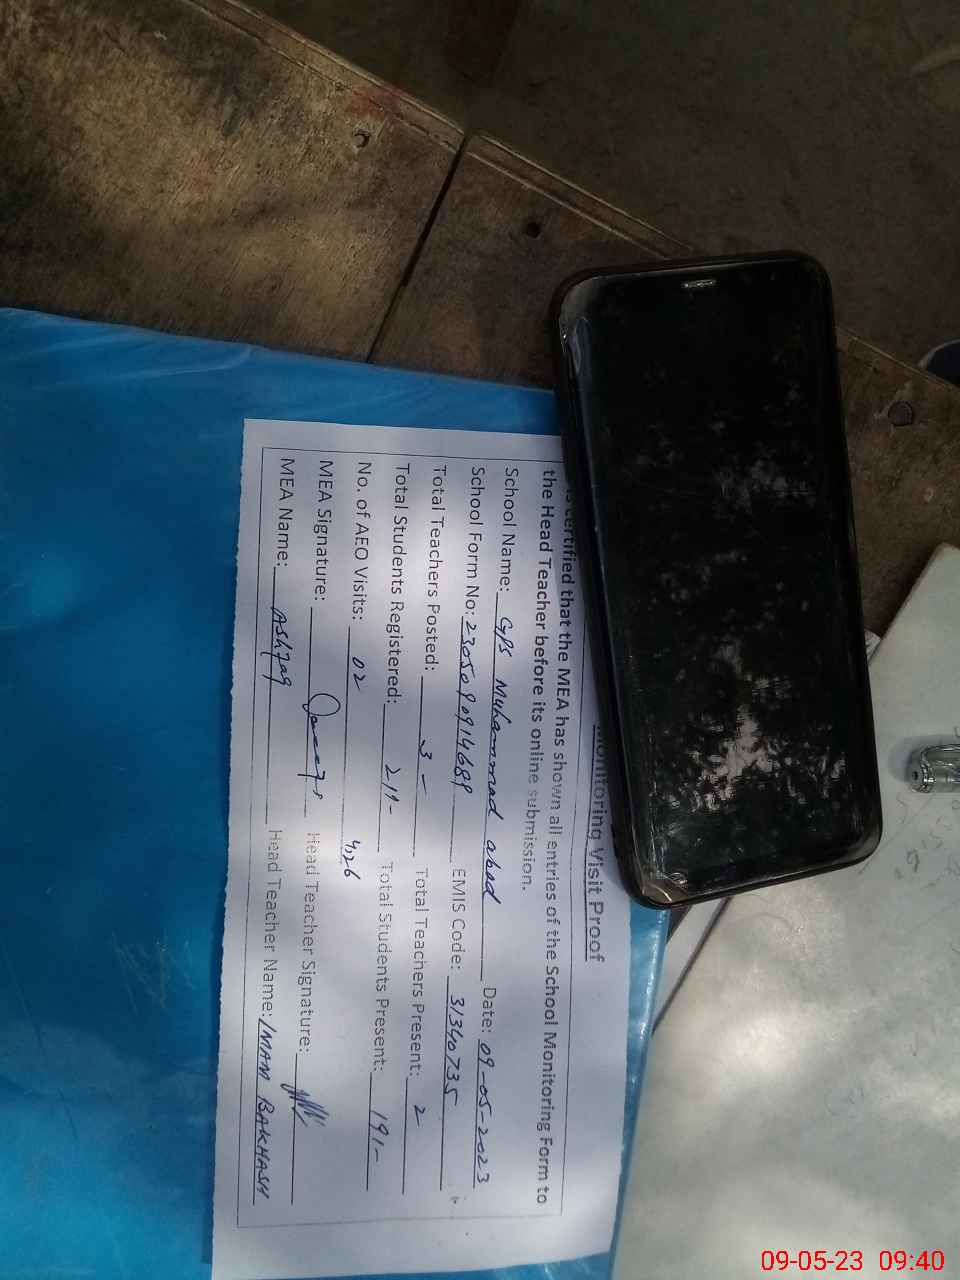 Monitoring Visit Proof
is certified that the MEA has shown all entries of the School Monitoring Form to
the Head Teacher before its online submission.
School Name: GPS Muhammad abad Date: 09-05-2023
School Form No: 2305090914689 EMIS Code: 31340735
Total Teachers Posted: 3- Total Teachers Present: 2
Total Students Registered: 211- Total Students Present: 191-
No. of AEO Visits: 02
MEA Signature: Head Teacher Signature:
MEA Name: Ashfaq Head Teacher Name: IMAM BAKHASH
09-05-23 09:40